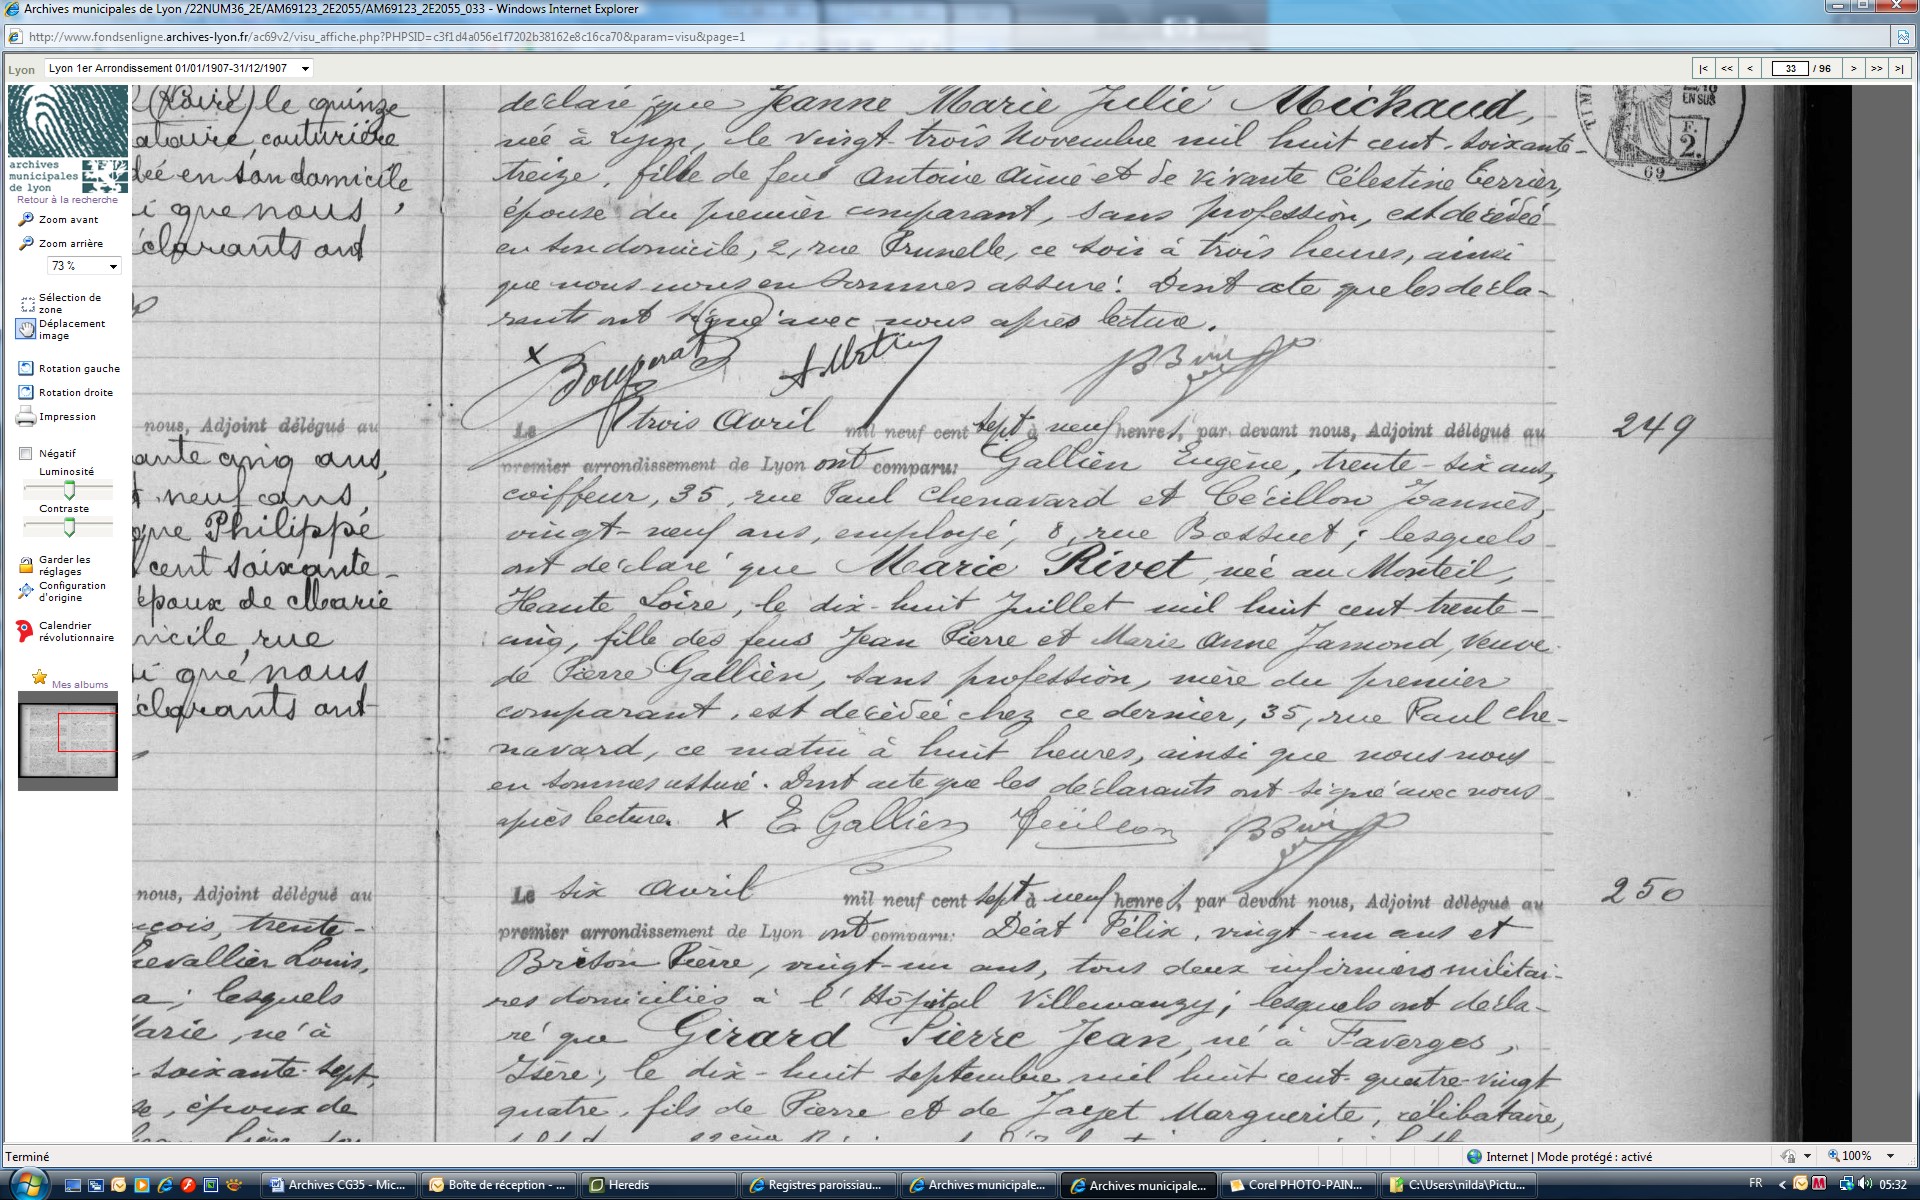 Archives municipales de Lyon /22NUM36_2E/AM69123_2E2055/AM69123_2E2055_033 - Windows Internet Explorer
http://www.fondsenligne.archives-lyon.fr/ac69v2/visu_affiche.php?PHPSID=c3f1d4a056e1f7202b38162e8c16ca70&param=visu&page=1
Lyon
Lyon 1er Arrondissement 01/01/1907-31/12/1907
|< << < 33 / 96 > >> >|
archives
municipales
de lyon
Retour à la recherche
Zoom avant
Zoom arrière
73 %
Sélection de
zone
Déplacement
image
Rotation gauche
Rotation droite
Impression
Négatif
Luminosité
Contraste
Garder les
réglages
Configuration
d'origine
Calendrier
révolutionnaire
Mes albums
(Loire) le quinze
ataire, couturière
dée en son domicile,
i que nous
éclarants ont
nous, Adjoint délégué au
ante cinq ans,
t neuf ans,
que Philippe
cent soixante-
époux de Marie
micile, rue
si que nous
éclarants ont
nous, Adjoint délégué au
nçois, trente-
hevallier Louis,
a; lesquels
Marie, né à
soixante-sept,
se, époux de
déclaré que Jeanne Marie Julie Michaud,
née à Lyon, le vingt-trois Novembre mil huit cent-soixante-
treize, fille de feu Antoine Aimé et de vivante Célestine Terrier,
épouse du premier comparant, sans profession, est décédée
en son domicile, 2, rue Prunelle, ce soir à trois heures, ainsi
que nous nous en sommes assuré. Dont acte que les décla-
rants ont signé avec nous après lecture.
x
EN SUS
F.
2.
69
249
Le trois Avril mil neuf cent sept à neuf heures, par devant nous, Adjoint délégué au
premier arrondissement de Lyon ont comparu: Gallien Eugène, trente-six ans,
coiffeur, 35, rue Paul Chenavard et Cécillon Joannès,
vingt-neuf ans, employé, 8, rue Bossuet; lesquels
ont déclaré que Marie Rivet, née au Monteil,
Haute Loire, le dix-huit Juillet mil huit cent trente-
cinq, fille des feus Jean Pierre et Marie Anne Jamond, Veuve
de Pierre Gallien, sans profession, mère du premier
comparant, est décédée chez ce dernier, 35, rue Paul Che-
navard, ce matin à huit heures, ainsi que nous nous
en sommes assuré. Dont acte que les déclarants ont signé avec nous
après lecture. x E Gallien Cécillon
250
Le six Avril mil neuf cent sept à neuf heures, par devant nous, Adjoint délégué au
premier arrondissement de Lyon ont comparu: Déat Félix, vingt-un ans et
Brison Pierre, vingt-un ans, tous deux infirmiers militai-
res domiciliés à l'Hôpital Villemanzy; lesquels ont décla-
ré que Girard Pierre Jean, né à Faverges,
Isère, le dix-huit septembre mil huit cent-quatre-vingt
quatre, fils de Pierre et de Jayet Marguerite, célibataire,
Terminé
Internet | Mode protégé : activé
100%
Archives CG35 - Mic...
Boîte de réception - ...
Heredis
Registres paroissiau...
Archives municipale...
Archives municipale...
Corel PHOTO-PAIN...
C:\Users\nilda\Pictu...
FR
05:32